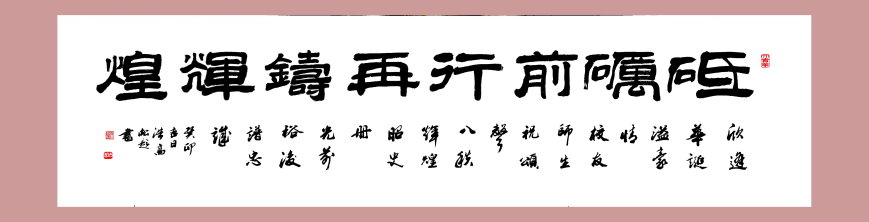 砥礪前行再鑄輝煌
欣逢
華誕
溢豪
情
校友
師生
祝頌
聲
八秩
輝煌
昭史
冊
光前
裕後
譜忠
誠
癸卯
吉日
書